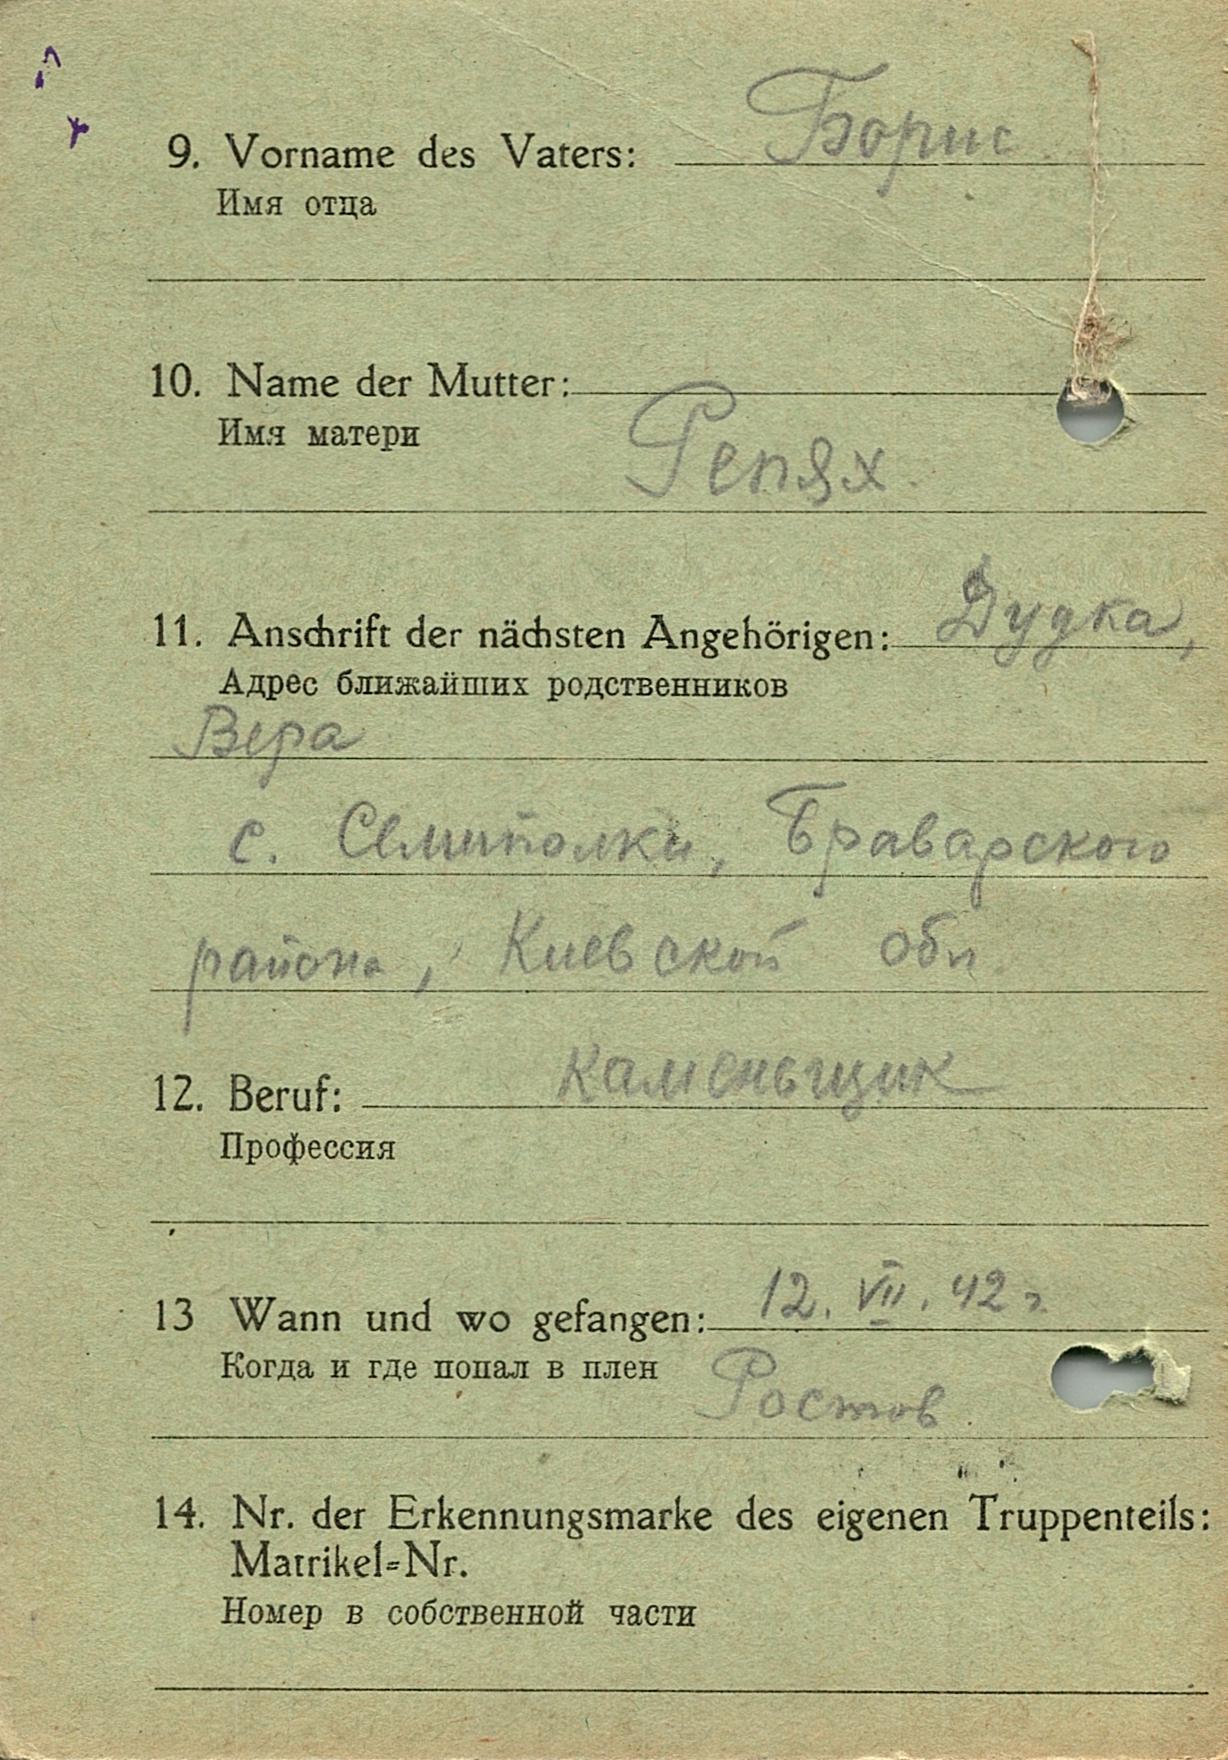 9. Vorname des Vaters: Борис
Имя отца
10. Name der Mutter:
Имя матери Репях
11. Anschrift der nächsten Angehörigen: Дудка,
Адрес ближайших родственников
Вера
с. Семиполки, Браварского
района, Киевской обл
12. Beruf: Каменьщик
Профессия
13 Wann und wo gefangen: 12. VII. 42 г.
Когда и где попал в плен Ростов
14. Nr. der Erkennungsmarke des eigenen Truppenteils:
Matrikel=Nr.
Номер в собственной части